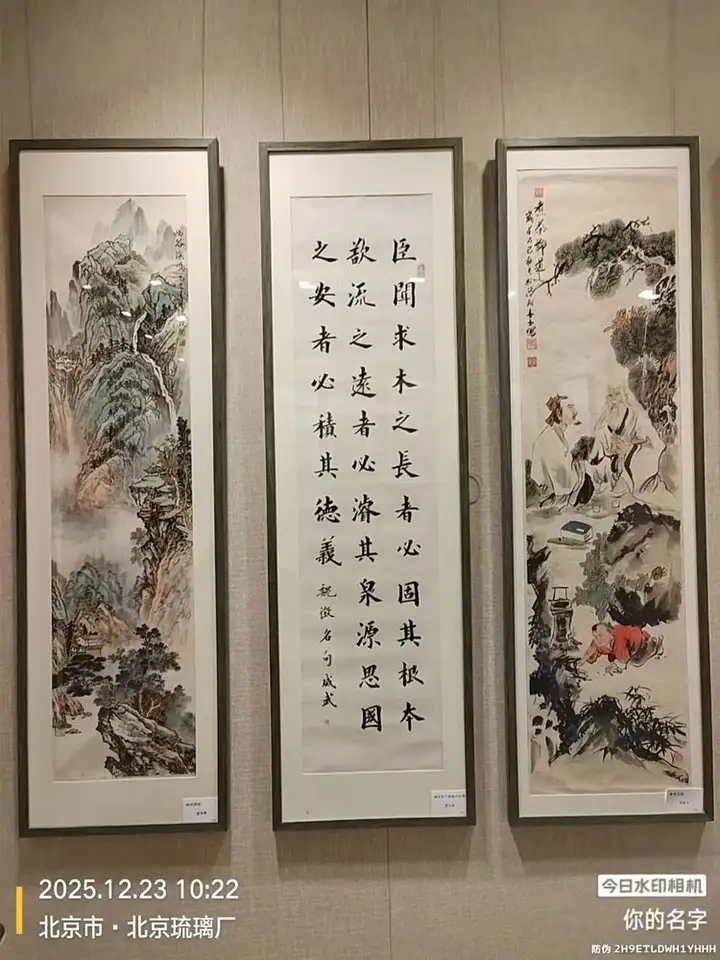 臣聞求木之長者必固其根本
欲流之遠者必濬其泉源思國
之安者必積其德義
魏徵名句成武
煮茶
2025.12.23 10:22
北京市·北京琉璃厂
今日水印相机
你的名字
防伪 2H9ETLDWH1YHHH